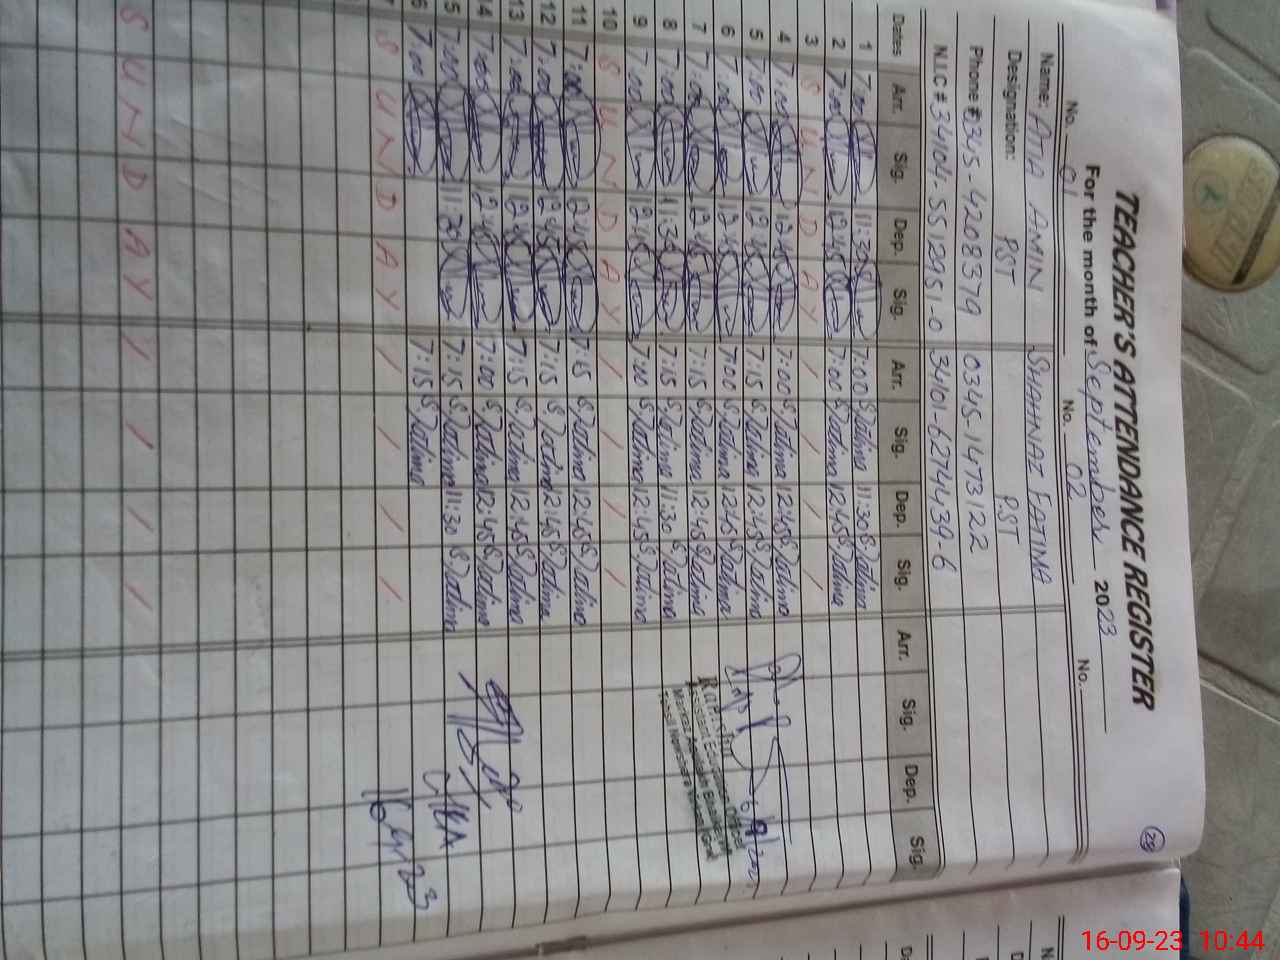 TEACHER'S ATTENDANCE REGISTER
For the month of September 2023
No. 01 No. 02 No.
Name: ATIA AMIN SHAHNAZ FATIMA
Designation: PST PST
Phone # 0345-4208379 0345-1473122
N.I.C # 34104-5512951-0 34101-6274439-6
Dates Arr. Sig. Dep. Sig. Arr. Sig. Dep. Sig. Arr. Sig. Dep. Sig.
1 7:00 11:30 7:00 S.Fatima 11:30 S.Fatima
2 7:00 12:45 7:00 S.Fatima 12:45 S.Fatima
3 S U N D A Y / / / /
4 7:00 12:45 7:00 S.Fatima 12:45 S.Fatima
5 7:00 12:45 7:15 S.Fatima 12:45 S.Fatima
6 7:00 12:45 7:00 S.Fatima 12:45 S.Fatima
7 7:00 12:45 7:15 S.Fatima 12:45 S.Fatima
8 7:00 11:30 7:15 S.Fatima 11:30 S.Fatima
9 7:00 12:45 7:00 S.Fatima 12:45 S.Fatima
10 S U N D A Y / / / /
11 7:00 12:45 7:15 S.Fatima 12:45 S.Fatima
12 7:00 12:45 7:15 S.Fatima 12:45 S.Fatima
13 7:00 12:45 7:15 S.Fatima 12:45 S.Fatima
14 7:00 12:45 7:00 S.Fatima 12:45 S.Fatima
15 7:00 11:30 7:15 S.Fatima 11:30 S.Fatima
16 7:00 7:15 S.Fatima
S U N D A Y / / / /
S U N D A Y / / / /
6/9/2023
Assistant Education Officer
16-09-23 10:44